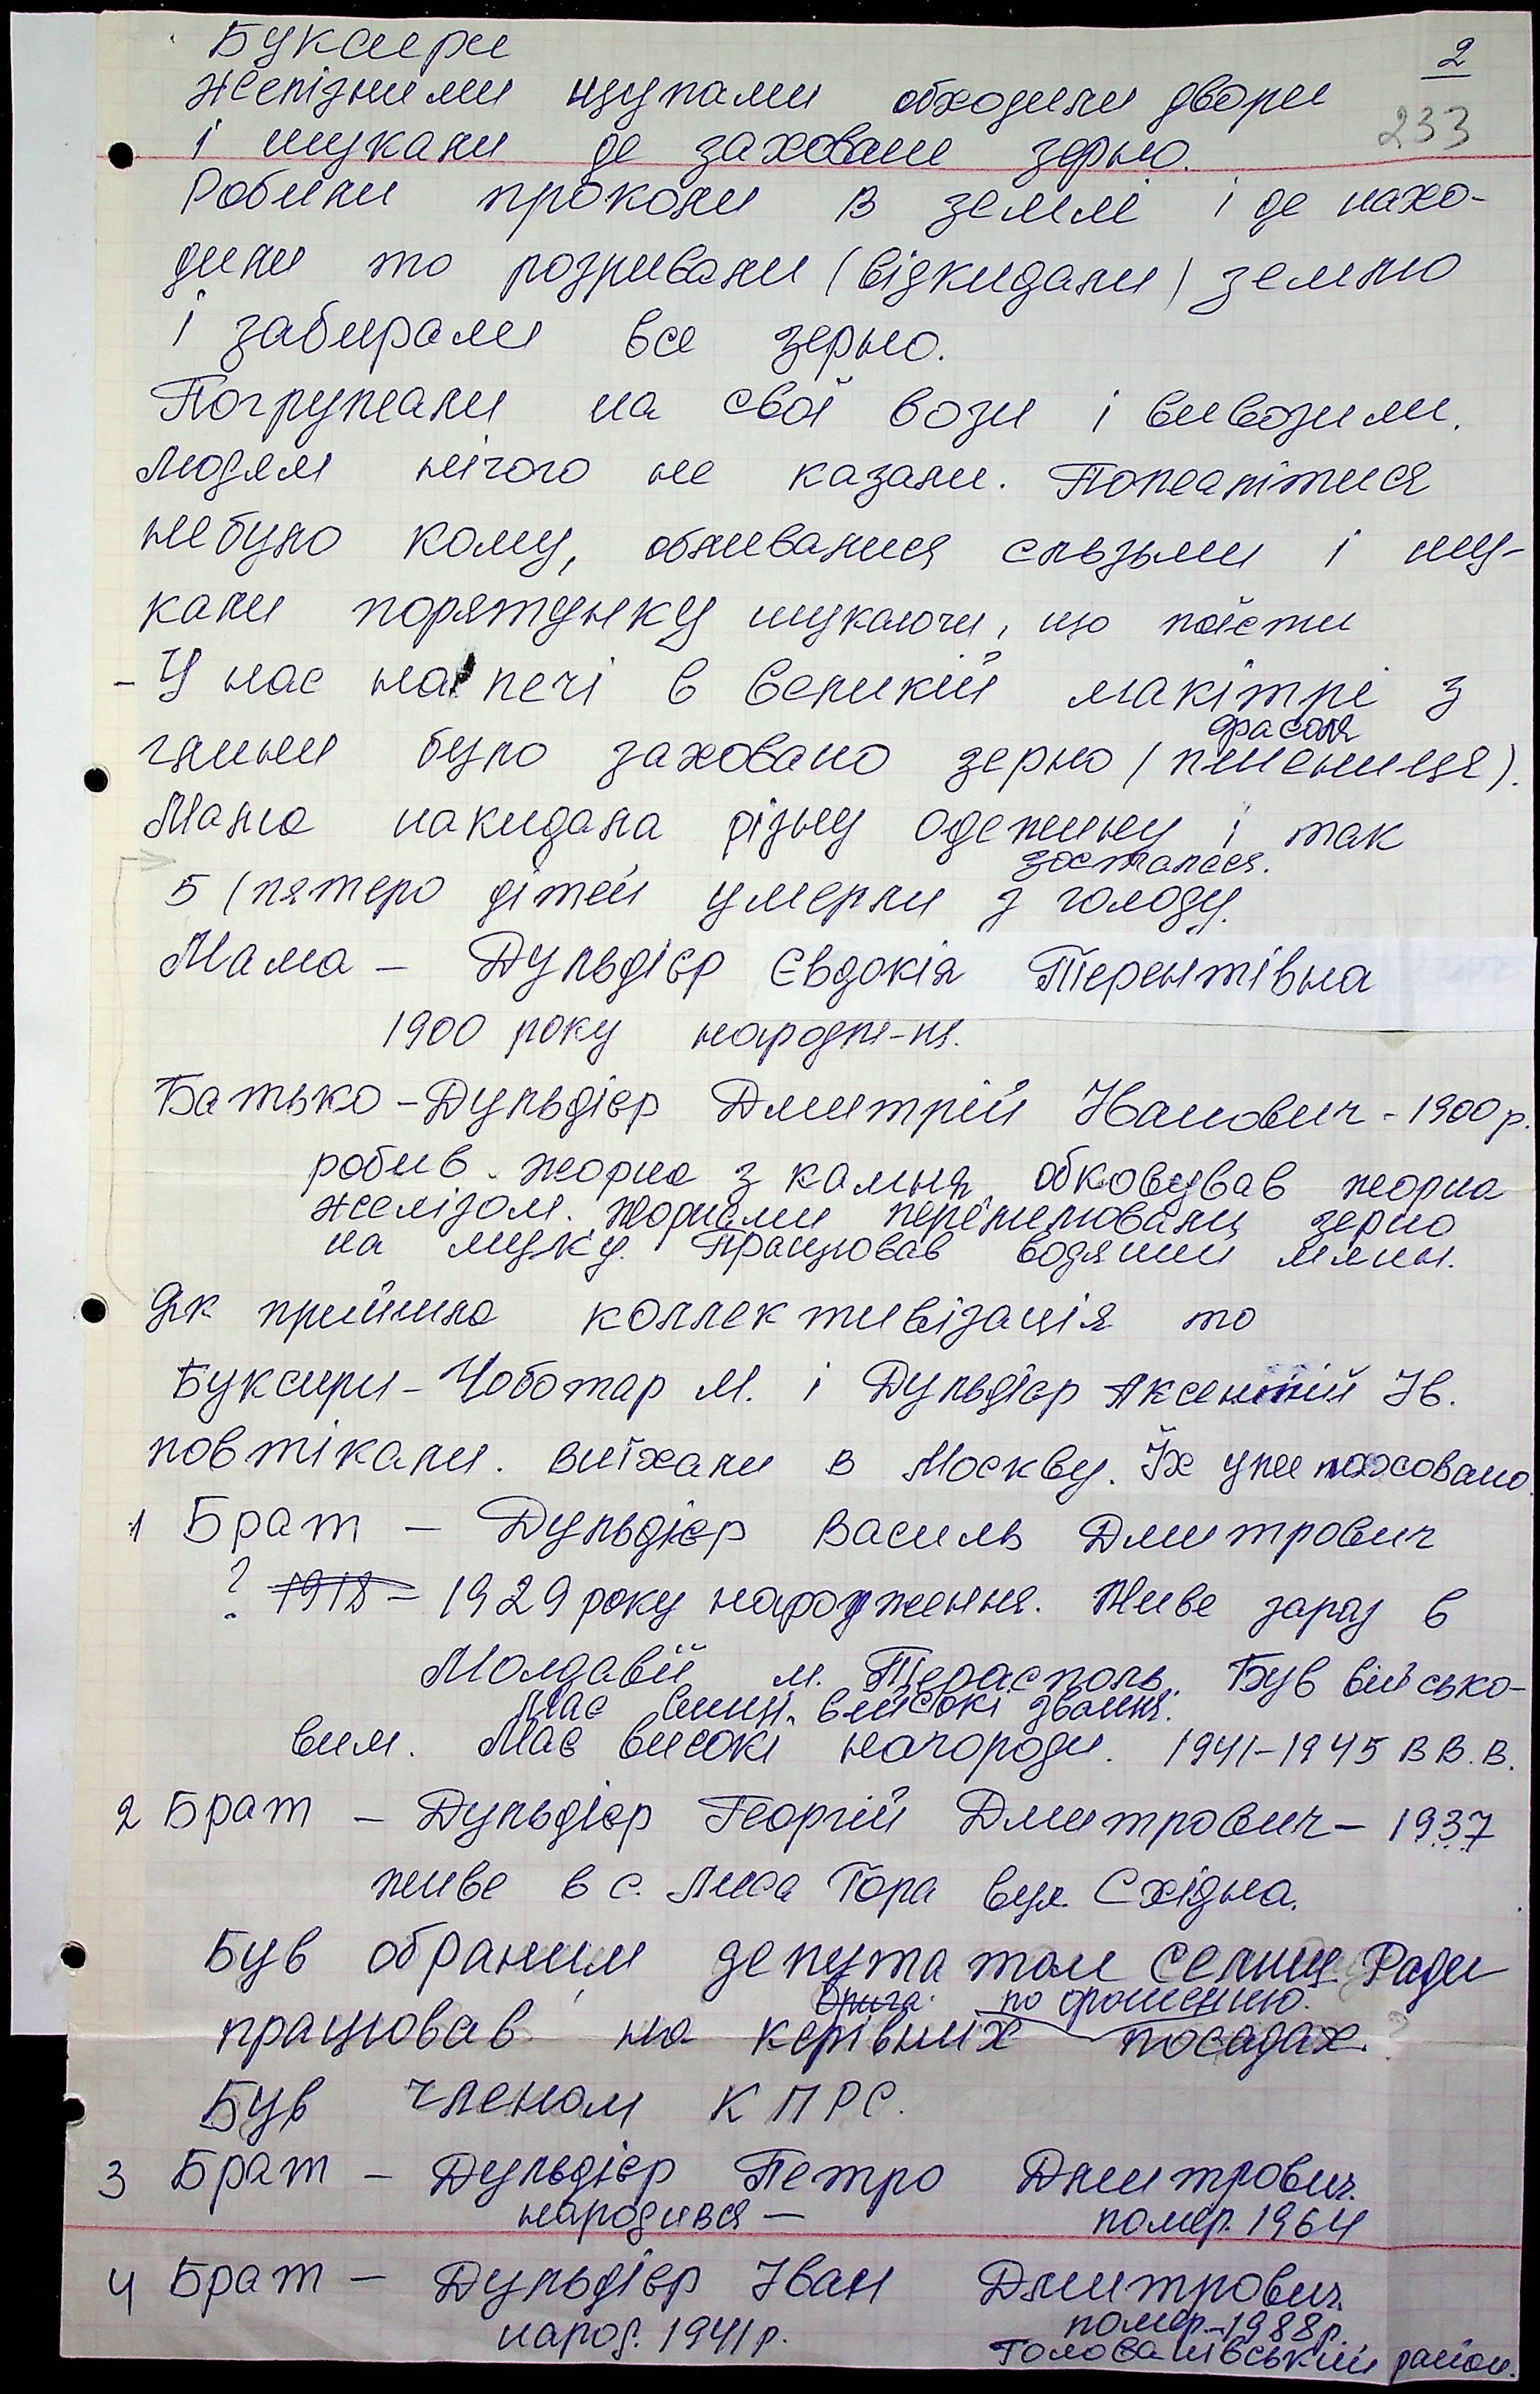 Буксири
2
233
желізними щупами обходили двори
і шукали де заховане зерно.
Робили проколи в землі і де нахо-
дили то розривали (відкидали) землю
і забирали все зерно.
Погружали на свої вози і вивозили.
Людям нічого не казали. Пожалітися
небуло кому, обливалися сльзьми і шу-
кали порятунку шукаючи, що поїсти
- У нас на печі в великій макітрі з
глини було заховано зерно (пшениця).
фасоля
Мама накидала різну одежину і так
зосталося.
5 (пятеро дітей умерли з голоду.
Мама - Дульдієр Євдокія Терентівна
1900 року народж-ня.
Батько - Дульдієр Дмитрій Іванович - 1900 р.
робив жорна з камня обковував жорна
желізом. Жорнами перемелювали зерно
на муку. Працював водяний млин.
Як прийшла коллективізація то
Буксири - Чоботар М. і Дульдієр Аксентій Ів.
повтікали. виїхали в Москву. Їх уже поховано.
1 Брат - Дульдієр Василь Дмитрович
? 1918 - 1929 року народження. Живе зараз в
Молдавії м. Терасполь. Був військо-
має високі звання.
вим. Має високі нагороди. 1941-1945 В В. В.
2 Брат - Дульдієр Георгій Дмитрович - 1937
живе в с. Лиса Гора вул. Східна.
Був обраним депутатом селищ. Ради
брига. по орошению.
працював на керівних посадах. ?
Був членом К П Р С.
3 Брат - Дульдієр Петро Дмитрович.
народився - помер. 1964
4 Брат - Дульдієр Іван Дмитрович.
народ. 1941 р. помер - 1988 р.
Голованівський район.